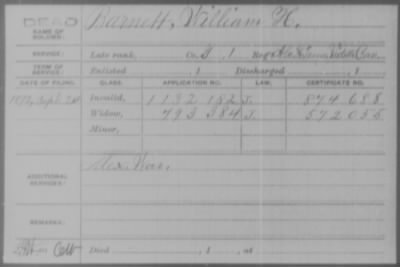 DEAD
NAME OF SOLDIER: Barnett, William H.
SERVICE: Late rank, Co. I, 1 Reg't
TERM OF SERVICE: Enlisted 1 Discharged , 1
DATE OF FILING. CLASS. APPLICATION NO. LAW. CERTIFICATE NO.
Sept. Invalid, 1132 182 J. 874 688
Widow, 793 384 J. 572 055
Minor,
ADDITIONAL SERVICES: Mex. War.
REMARKS:
Died , 1 , at